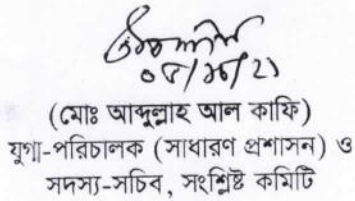 ০৫/১০/২১
(মোঃ আব্দুল্লাহ আল কাফি)
যুগ্ম-পরিচালক (সাধারণ প্রশাসন) ও
সদস্য-সচিব, সংশ্লিষ্ট কমিটি